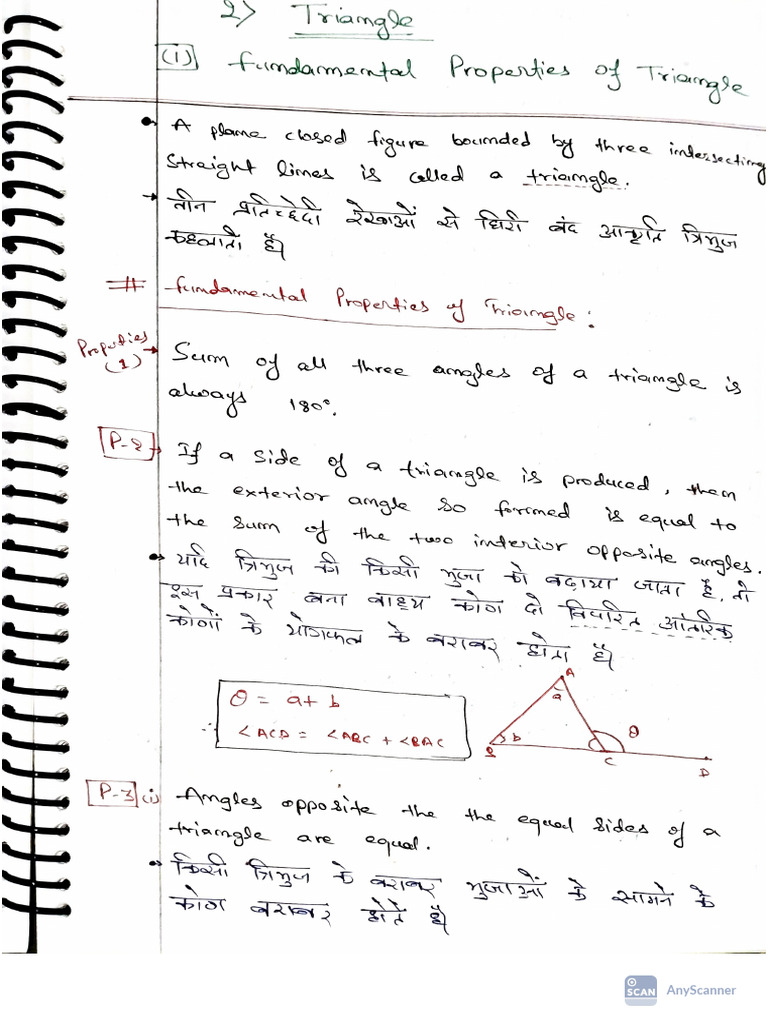 2) Triangle
(i) Fundamental Properties of Triangle
A plane closed figure bounded by three intersecting
straight lines is called a triangle.
तीन प्रतिच्छेदी रेखाओं से घिरी बंद आकृति त्रिभुज
कहलाती है।
# Fundamental Properties of Triangle:
Properties (1) → Sum of all three angles of a triangle is
always 180°.
P-2 → If a side of a triangle is produced, then
the exterior angle so formed is equal to
the sum of the two interior opposite angles.
यदि त्रिभुज की किसी भुजा को बढ़ाया जाता है, तो
इस प्रकार बना बाह्य कोण दो विपरित आंतरिक
कोणों के योगफल के बराबर होता है।
θ = a + b
∴ ∠ACD = ∠ABC + ∠BAC
A
a
b
θ
B
C
D
P-3 (i) Angles opposite the the equal sides of a
triangle are equal.
किसी त्रिभुज के बराबर भुजाओं के सामने के
कोण बराबर होते है।
SCAN AnyScanner